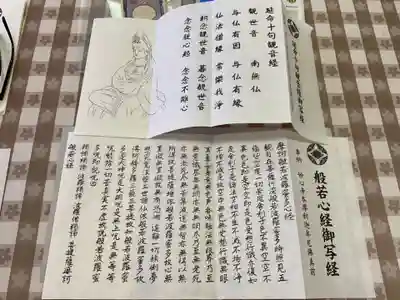 延命十句観音経
観世音 南無仏
与仏有因 与仏有縁
仏法僧縁 常楽我浄
朝念観世音 暮念観世音
念念従心起 念念不離心
般若心経御写経
摩訶般若波羅蜜多心経
観自在菩薩行深般若波羅蜜多時照見五
蘊皆空度一切苦厄舎利子色不異空空不
異色色即是空空即是色受想行識亦復如
是舎利子是諸法空相不生不滅不垢不浄
不増不減是故空中無色無受想行識無眼
耳鼻舌身意無色声香味触法無眼界乃至
無意識界無無明亦無無明尽乃至無老死
亦無老死尽無苦集滅道無智亦無得以無
所得故菩提薩埵依般若波羅蜜多故心無
罣礙無罣礙故無有恐怖遠離一切顛倒夢
想究竟涅槃三世諸仏依般若波羅蜜多故
得阿耨多羅三藐三菩提故知般若波羅蜜
多是大神呪是大明呪是無上呪是無等等
呪能除一切苦真実不虚故説般若波羅蜜
多呪即説呪曰
羯諦羯諦 波羅羯諦 波羅僧羯諦 菩提薩婆訶
般若心経